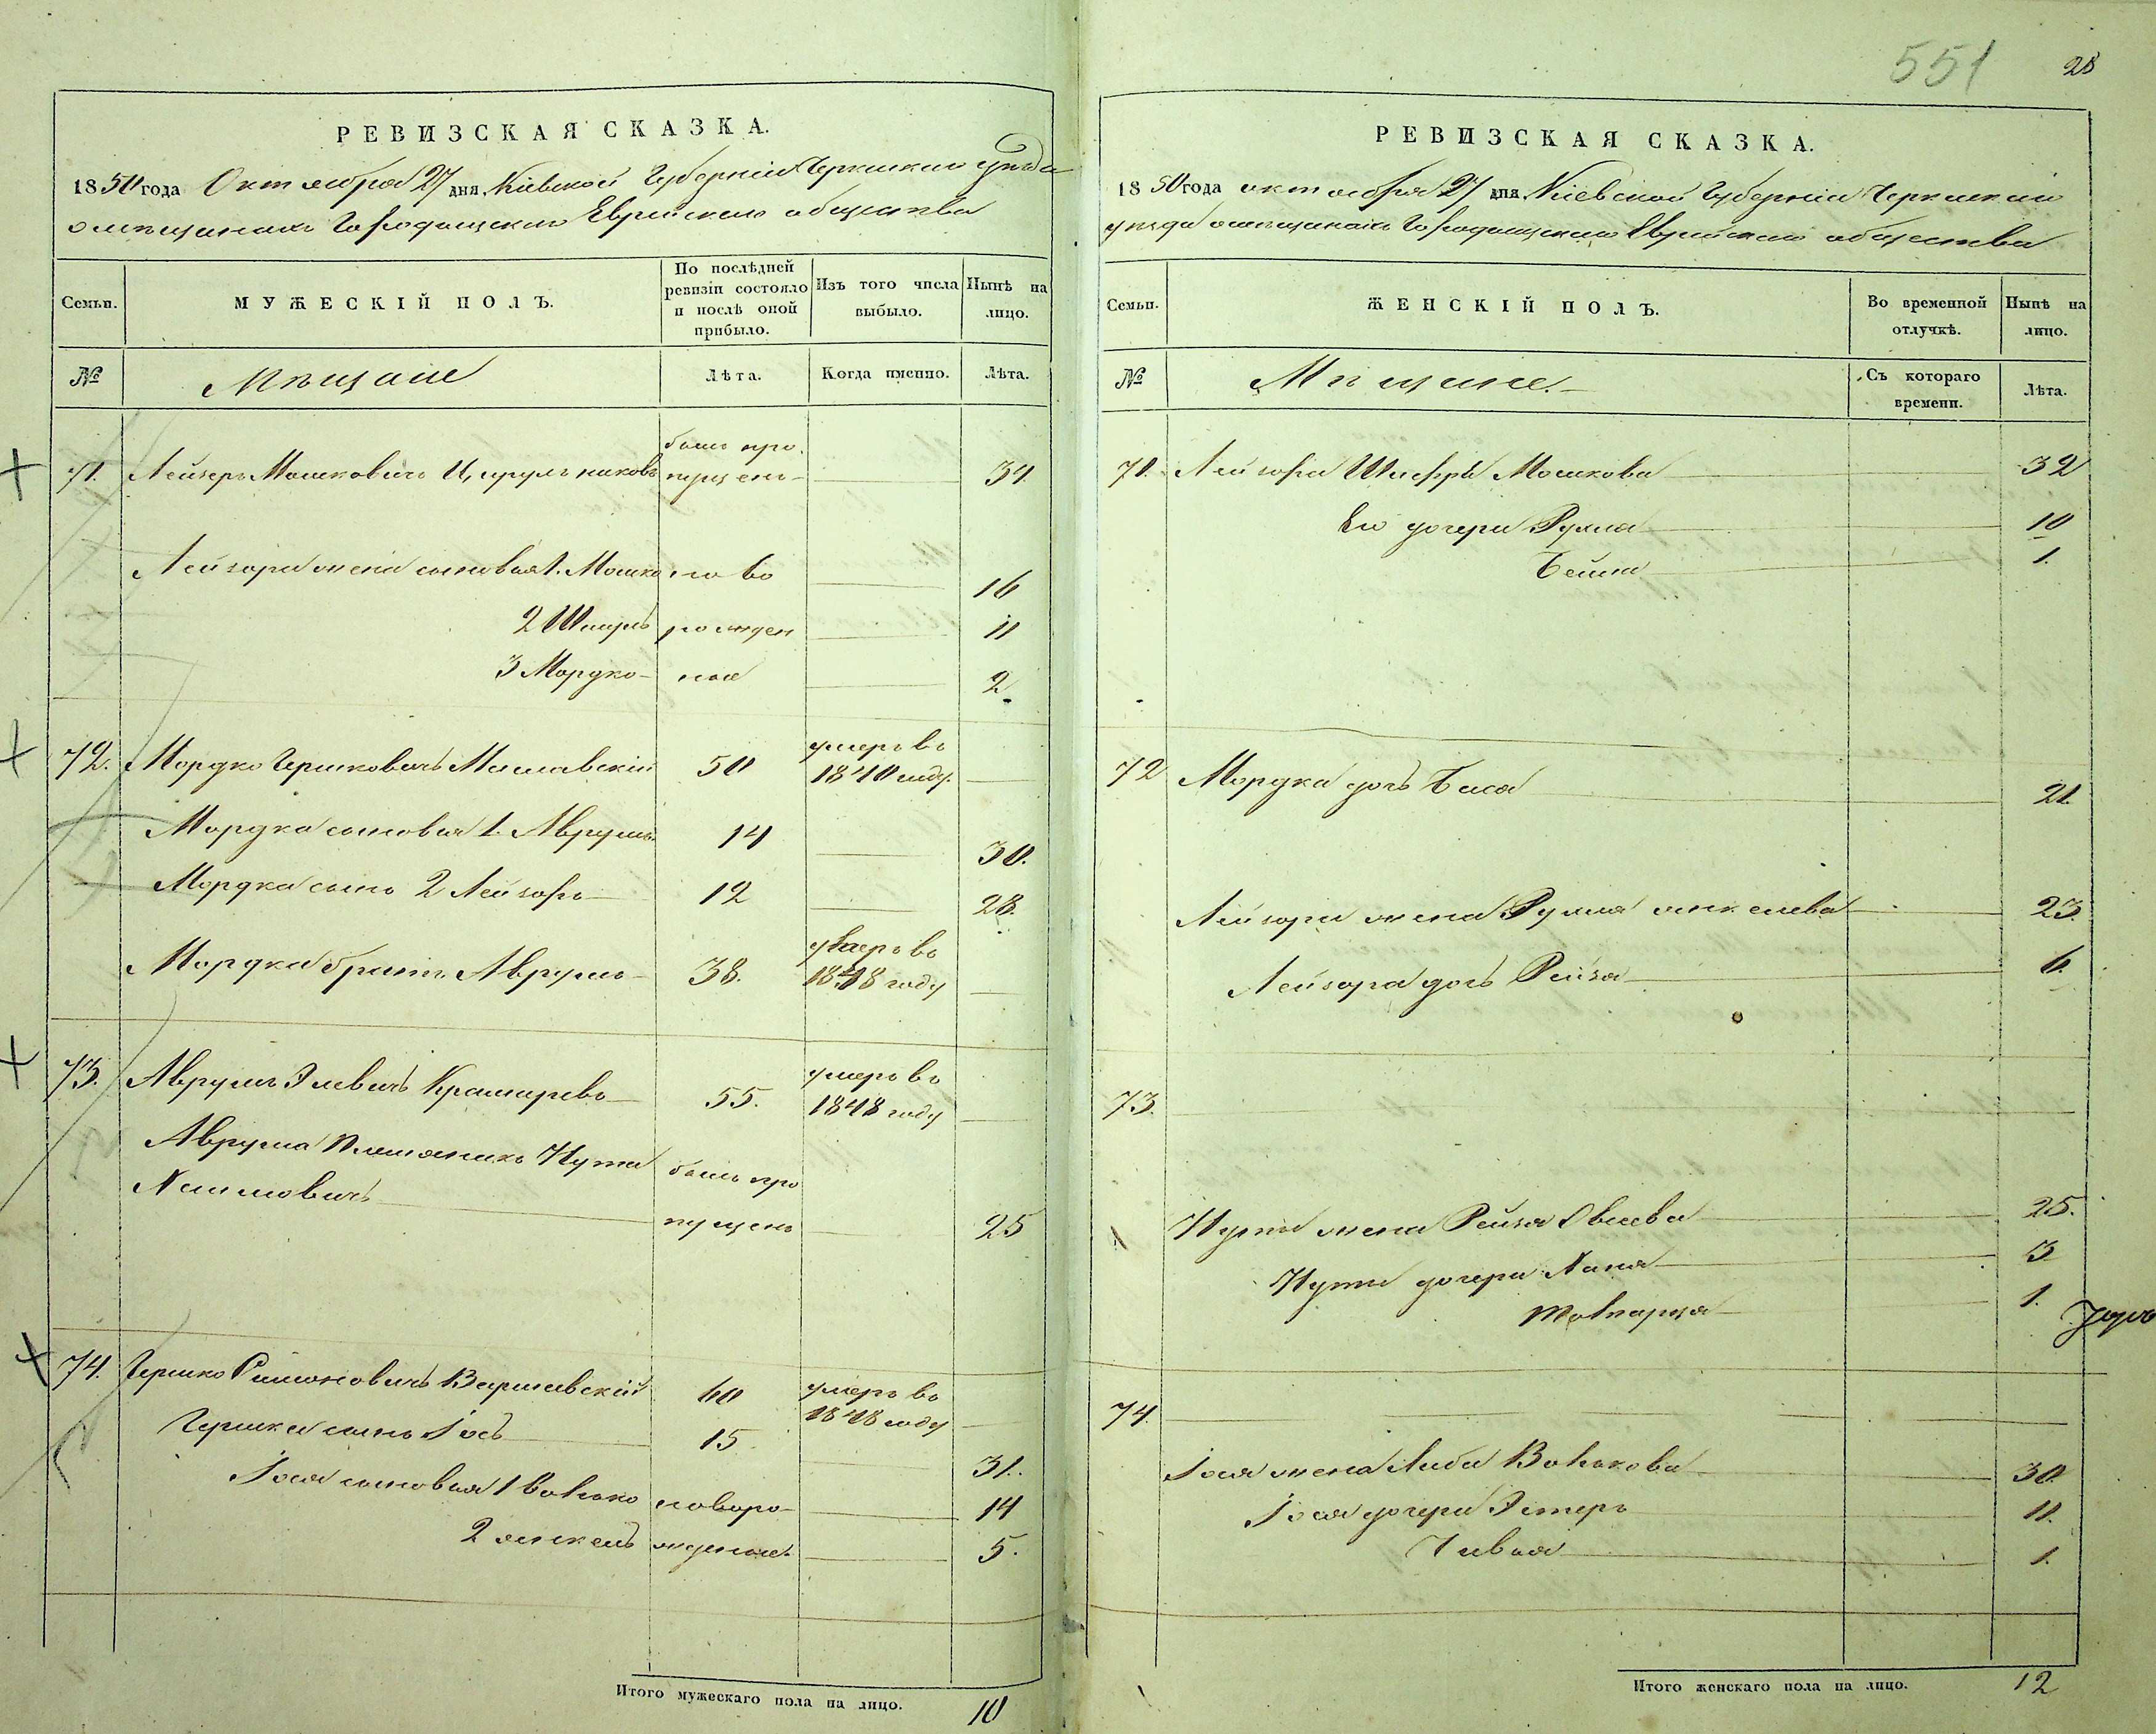 РЕВИЗСКАЯ СКАЗКА.
1850 года Октября 27 дня Кіевской Губерніи Черкаскаго уезда
о мещанахъ Городищскаго Еврейскаго общества
Семьи.
МУЖЕСКІЙ ПОЛЪ.
По послѣдней ревизіи состояло и послѣ оной прибыло.
Изъ того числа выбыло.
Нынѣ на лицо.
№
Мѣщане
Лѣта.
Когда именно.
Лѣта.
71. Лейзеръ Мошковичъ Цырульниковъ былъ пропущенъ 34.
Лейзора жена сыновья 1. Мошко ново 16
2 Шмуль рожден 11
3 Мордко ные 2
72. Мордко Гершковичъ Маславскій 50 умеръ въ 1840 году.
Мордка сыновья 1. Аврумъ 14 30.
Мордка сынъ 2 Лейзоръ 12 28.
Мордка братъ Аврумъ 38. умеръ въ 1848 году
73. Аврумъ Элевичъ Крамаревъ 55. умеръ въ 1848 году
Аврума племяникъ Нута
Хаимовичъ былъ пропущенъ 25
74. Гершко Симоновичъ Варшавскій 60 умеръ въ 1848 году
Гершка сынъ Іось 15 31.
Іося сыновья 1 Волько новоро 14
2 Янкель жденые 5.
Итого мужескаго пола на лицо. 10
551
28
РЕВИЗСКАЯ СКАЗКА.
1850 года октября 27 дня Кіевской Губерніи Черкаскаго
уезда о мещанахъ Городищскаго Еврейскаго общества
Семьи.
ЖЕНСКІЙ ПОЛЪ.
Во временной отлучкѣ.
Нынѣ на лицо.
№
Мѣщане.
Съ котораго времени.
Лѣта.
71. Лейзора Шифра Мошкова 32
Его дочери Рухля 10
Бейла 1.
72 Мордка дочь Бася 21.
Лейзора жена Рухля Янкелева 23.
Лейзора дочь Рейзя 6.
73.
Нуты жена Рейзя Овсеева 25.
Нуты дочери Хана 3
1.
74.
Іося жена Либа Волькова 30
Іося дочери Эстеръ 11.
Цивья 1.
Итого женскаго пола на лицо. 12